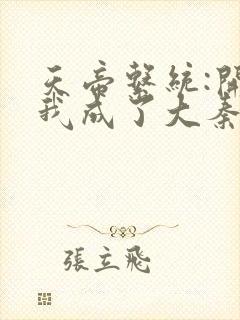 天帝系統:開
我成了大秦
張立飛